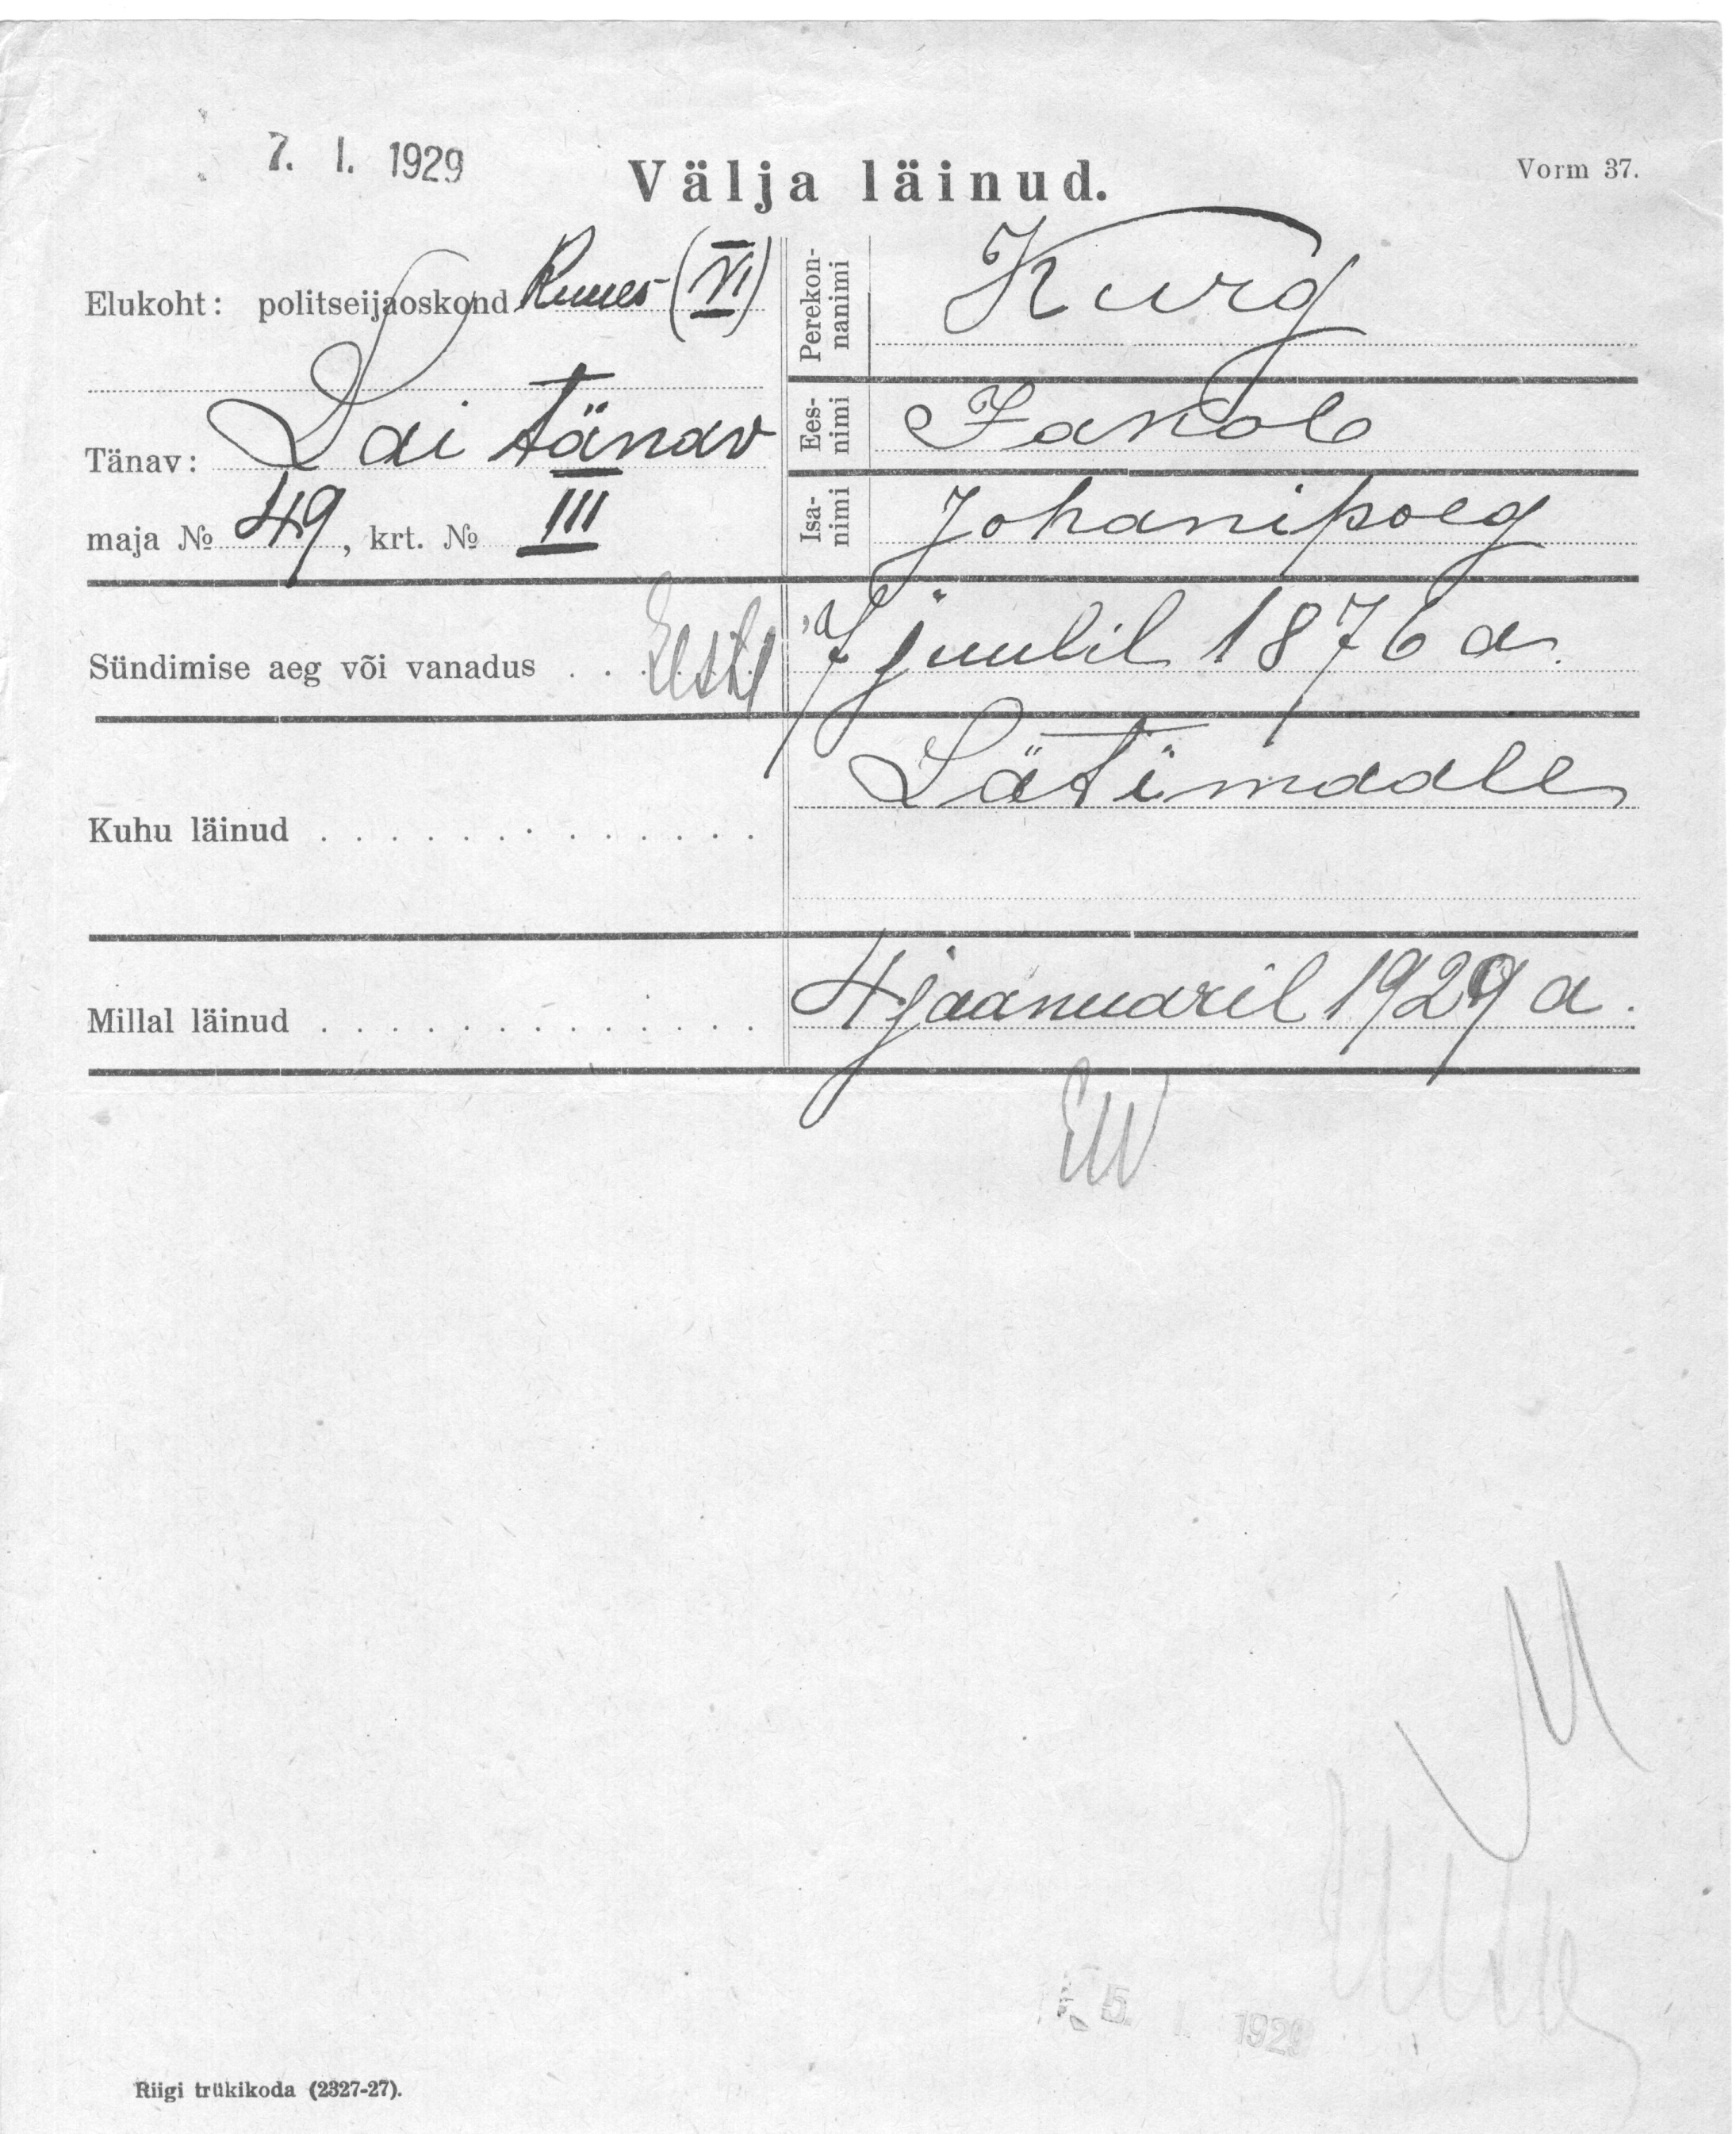 7. I. 1929
Välja läinud.
Vorm 37.
Elukoht: politseijaoskond Kuues (VI)
Tänav: Lai tänav
maja № 49, krt. № III
Perekon-
nanimi
Kurg
Ees-
nimi
Jakob
Isa-
nimi
Johanipoeg
Sündimise aeg või vanadus . . . Eesti
7 juulil 1876 a.
Kuhu läinud . . . . . . . . . . . . .
Lätimaale
Millal läinud . . . . . . . . . . . . .
4 jaanuaril 1929 a.
EW
5. I. 1929
Riigi trükikoda (2327-27).